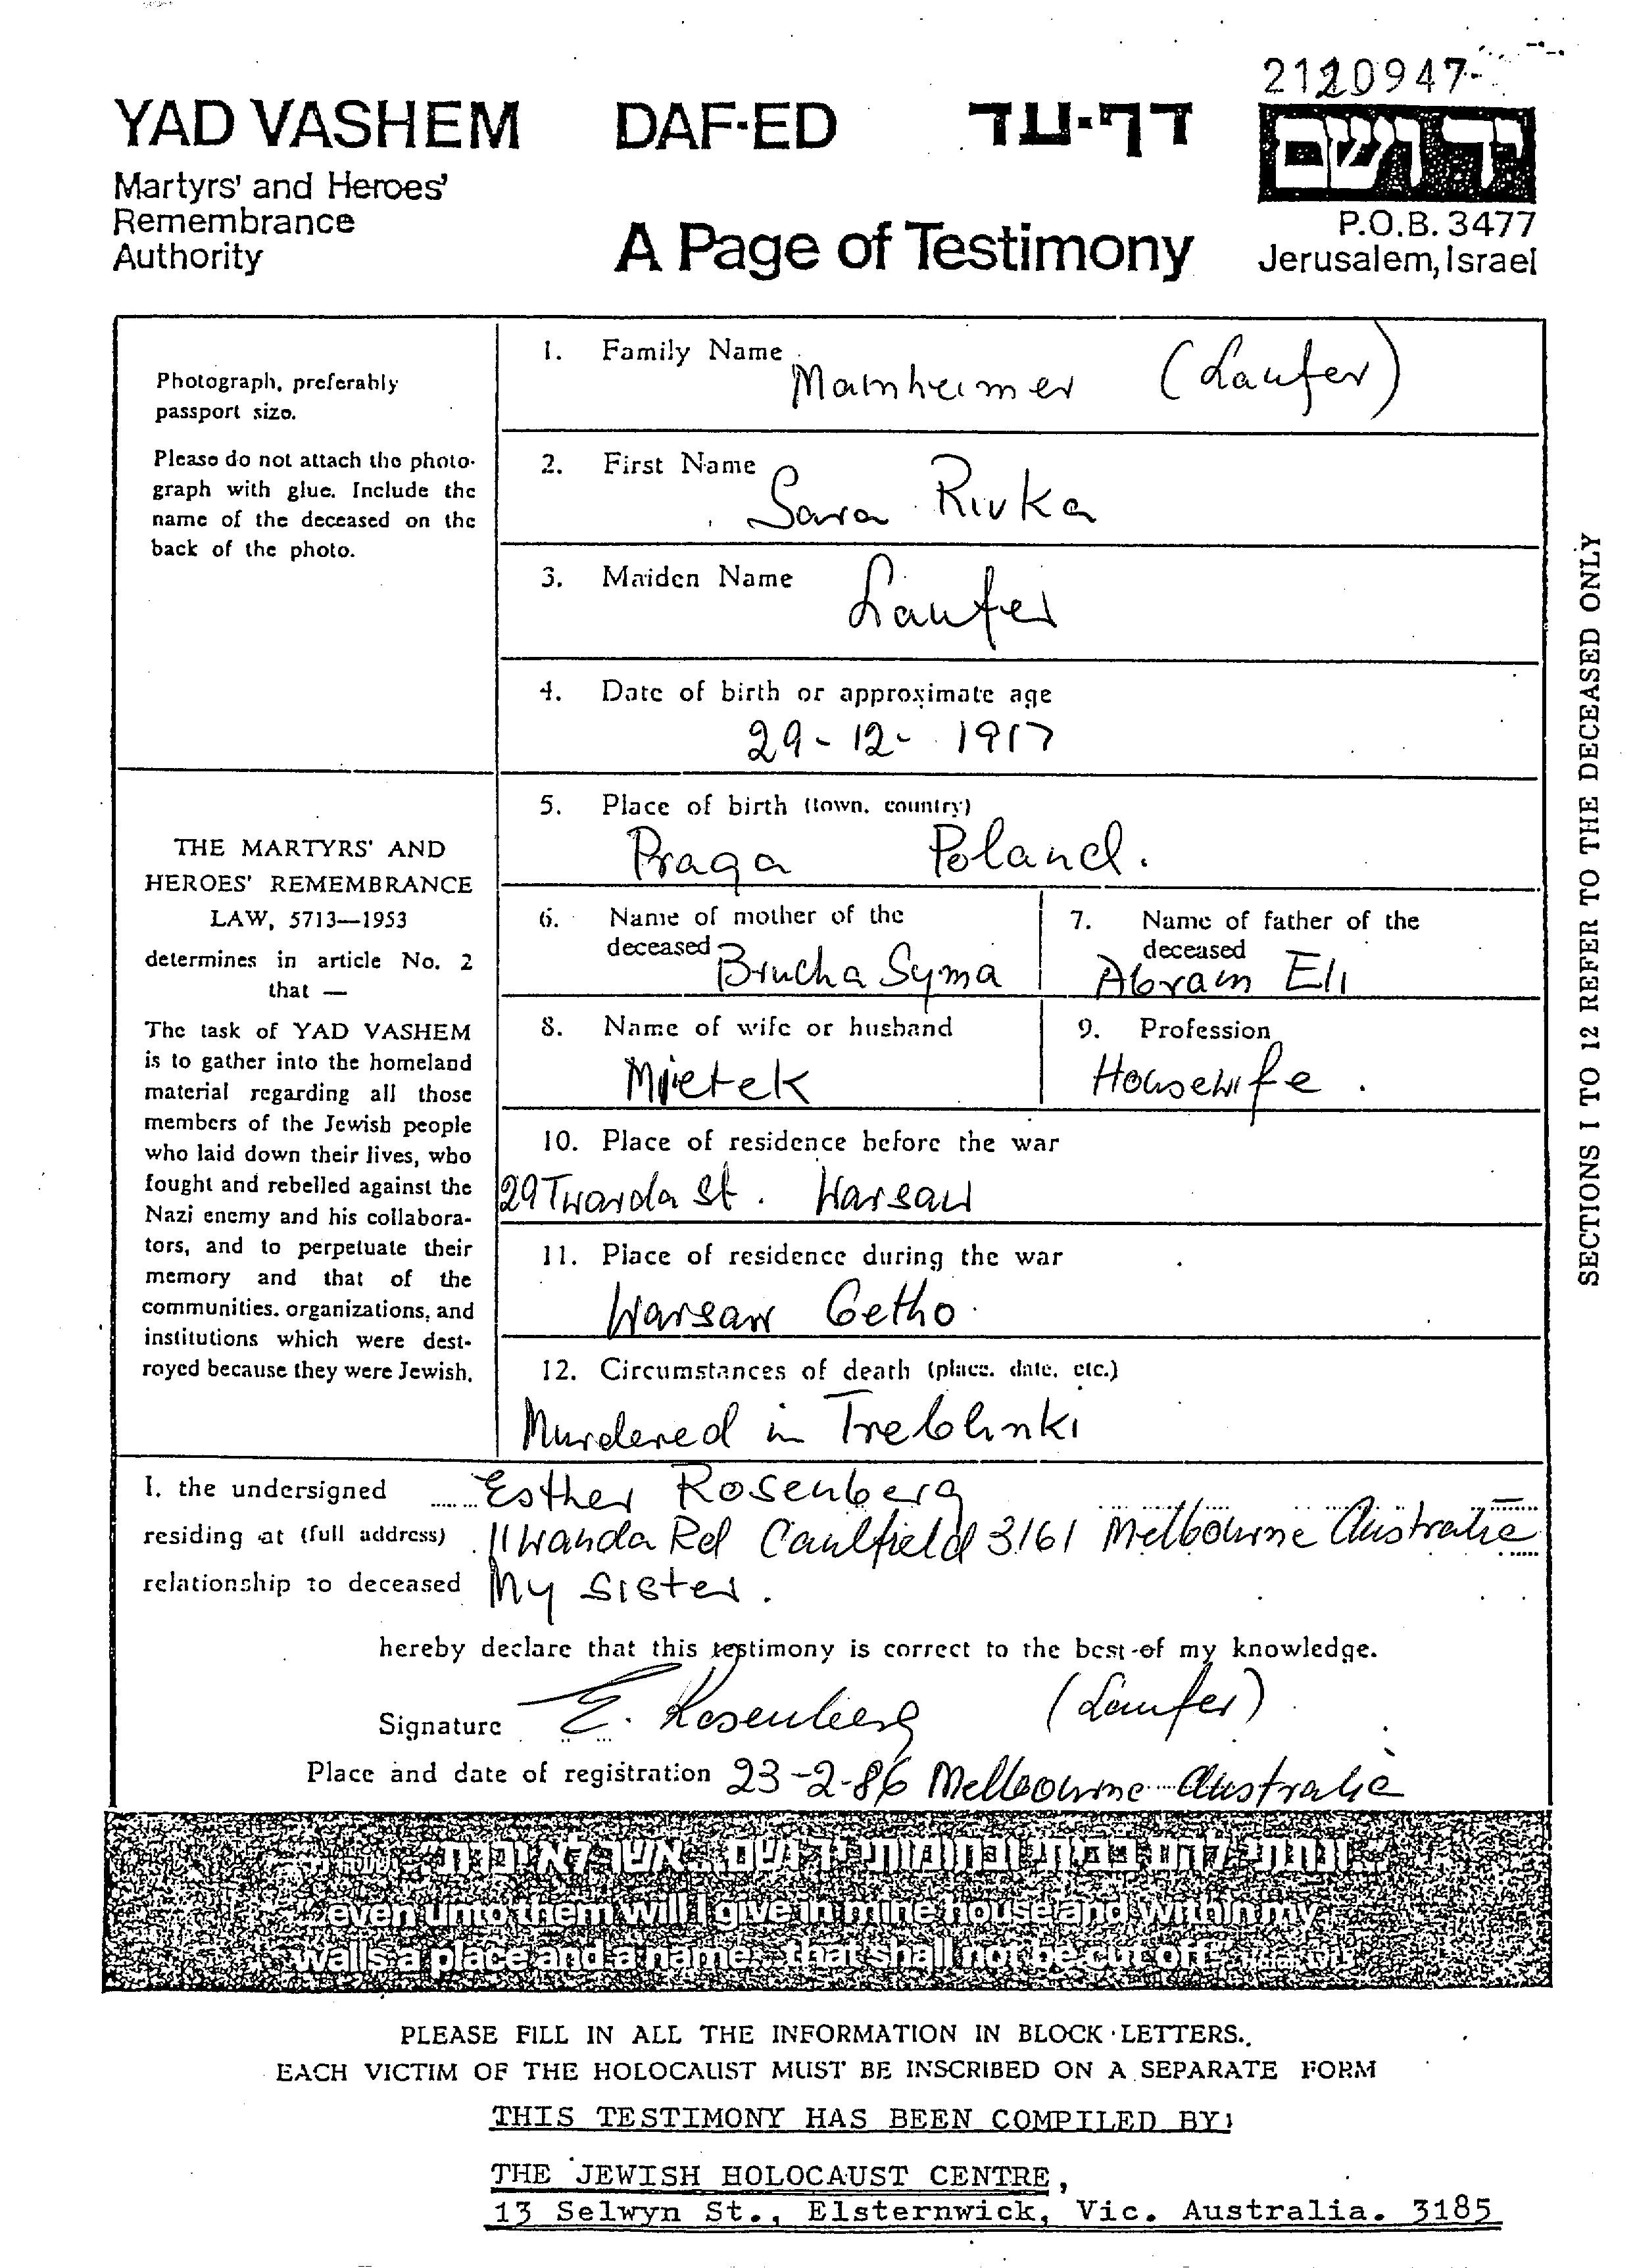 2120947-
YAD VASHEM DAF-ED דף-עד
ידושם
Martyrs' and Heroes'
Remembrance
Authority
A Page of Testimony
P.O.B. 3477
Jerusalem, Israel
Photograph, preferably
passport size.
Please do not attach the photo-
graph with glue. Include the
name of the deceased on the
back of the photo.
THE MARTYRS' AND
HEROES' REMEMBRANCE
LAW, 5713—1953
determines in article No. 2
that —
The task of YAD VASHEM
is to gather into the homeland
material regarding all those
members of the Jewish people
who laid down their lives, who
fought and rebelled against the
Nazi enemy and his collabora-
tors, and to perpetuate their
memory and that of the
communities, organizations, and
institutions which were dest-
royed because they were Jewish.
1. Family Name
Mainheimer (Laufer)
2. First Name
Sara Rivka
3. Maiden Name
Laufer
4. Date of birth or approximate age
29-12- 1917
5. Place of birth (town, country)
Praga Poland.
6. Name of mother of the
deceased Brucha Syma
7. Name of father of the
deceased
Abram Eli
8. Name of wife or husband
Mietek
9. Profession
Housewife.
10. Place of residence before the war
29 Twarda St. Warsaw
11. Place of residence during the war
Warsaw Getho.
12. Circumstances of death (place, date, etc.)
Murdered in Treblinki
SECTIONS 1 TO 12 REFER TO THE DECEASED ONLY
I, the undersigned Esther Rosenberg
residing at (full address) 11 Wanda Rd Caulfield 3161 Melbourne Australia
relationship to deceased My sister.
hereby declare that this testimony is correct to the best of my knowledge.
Signature E. Rosenberg (Laufer)
Place and date of registration 23-2-86 Melbourne Australia
"...ונתתי להם בביתי ובחומותי יד ושם... אשר לא יכרת"
"...even unto them will I give in mine house and within my
walls a place and a name... that shall not be cut off"
PLEASE FILL IN ALL THE INFORMATION IN BLOCK LETTERS.
EACH VICTIM OF THE HOLOCAUST MUST BE INSCRIBED ON A SEPARATE FORM
THIS TESTIMONY HAS BEEN COMPILED BY:
THE JEWISH HOLOCAUST CENTRE,
13 Selwyn St., Elsternwick, Vic. Australia. 3185